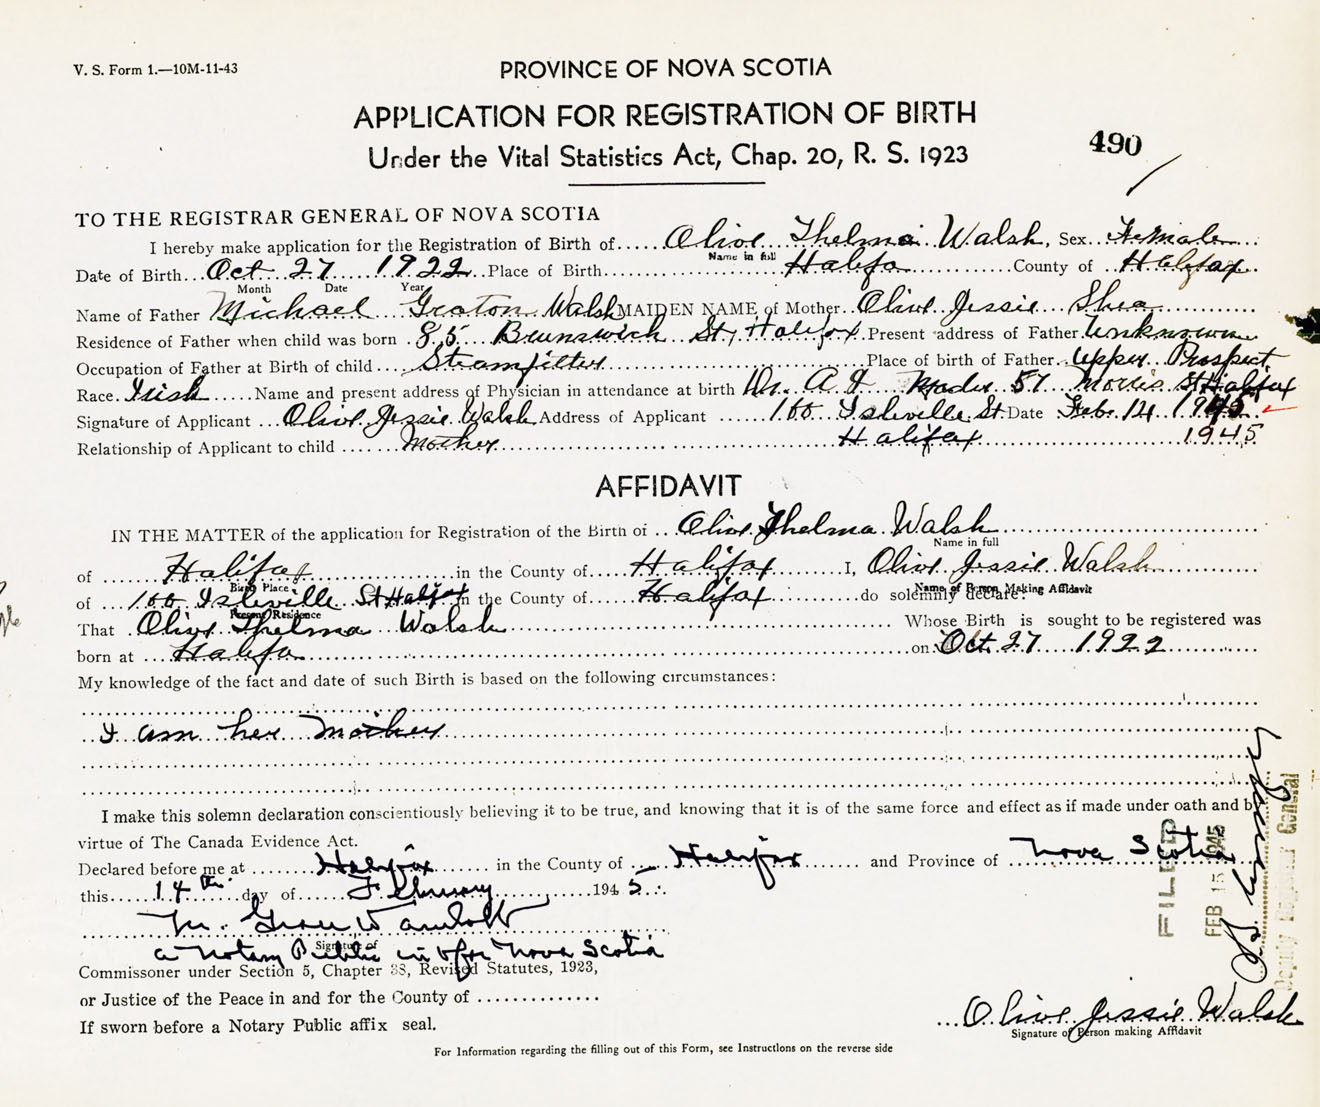 V. S. Form 1.—10M-11-43
PROVINCE OF NOVA SCOTIA
APPLICATION FOR REGISTRATION OF BIRTH
Under the Vital Statistics Act, Chap. 20, R. S. 1923
490
TO THE REGISTRAR GENERAL OF NOVA SCOTIA
I hereby make application for the Registration of Birth of Olive Thelma Walsh, Sex Female
Name in full
Date of Birth Oct 27 1922 Place of Birth Halifa County of Halifax
Month Date Year
Name of Father Michael Graton Walsh MAIDEN NAME of Mother Olive Jessie Shea
Residence of Father when child was born 85 Brunswick St, Halifax Present address of Father Unknown
Occupation of Father at Birth of child Steamfitter Place of birth of Father Upper Prospect
Race Irish Name and present address of Physician in attendance at birth Dr. A 57 Morris St Halifax
Signature of Applicant Olive Jessie Walsh Address of Applicant 166 Isleville St Date Feb. 14 1945
Relationship of Applicant to child Mother Halifax 1945
AFFIDAVIT
IN THE MATTER of the application for Registration of the Birth of Olive Thelma Walsh
Name in full
of Halifax in the County of Halifax I, Olive Jessie Walsh
Birth Place Name of Person Making Affidavit
of 166 Isleville St Halifax in the County of Halifax do solemnly declare:
Present Residence
That Olive Thelma Walsh Whose Birth is sought to be registered was
born at Halifa on Oct. 27 1922
My knowledge of the fact and date of such Birth is based on the following circumstances:
I am her Mother
I make this solemn declaration conscientiously believing it to be true, and knowing that it is of the same force and effect as if made under oath and by
virtue of The Canada Evidence Act.
Declared before me at Halifax in the County of Halifax and Province of Nova Scotia
this 14th day of February 1945
M. Grace W
Signature of
a Notary Public in & for Nova Scotia
Commissoner under Section 5, Chapter 38, Revised Statutes, 1923,
or Justice of the Peace in and for the County of
If sworn before a Notary Public affix seal.
FILED
FEB 15 1945
Deputy Registrar General
Olive Jessie Walsh
Signature of Person making Affidavit
For Information regarding the filling out of this Form, see Instructions on the reverse side